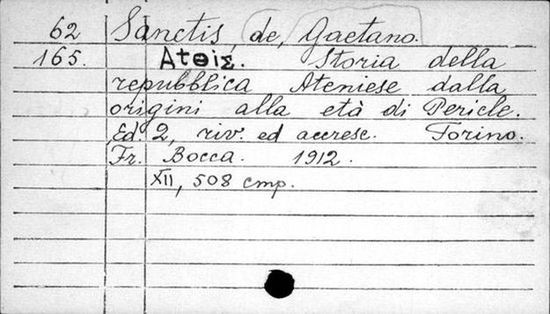 62 Sanctis, de, Gaetano.
165. Ατθiς. Storia della
repubblica Ateniese dalla
origini alla età di Pericle.
Ed. 2, riv. ed accresc. Torino.
Fr. Bocca. 1912.
XII, 508 cmp.